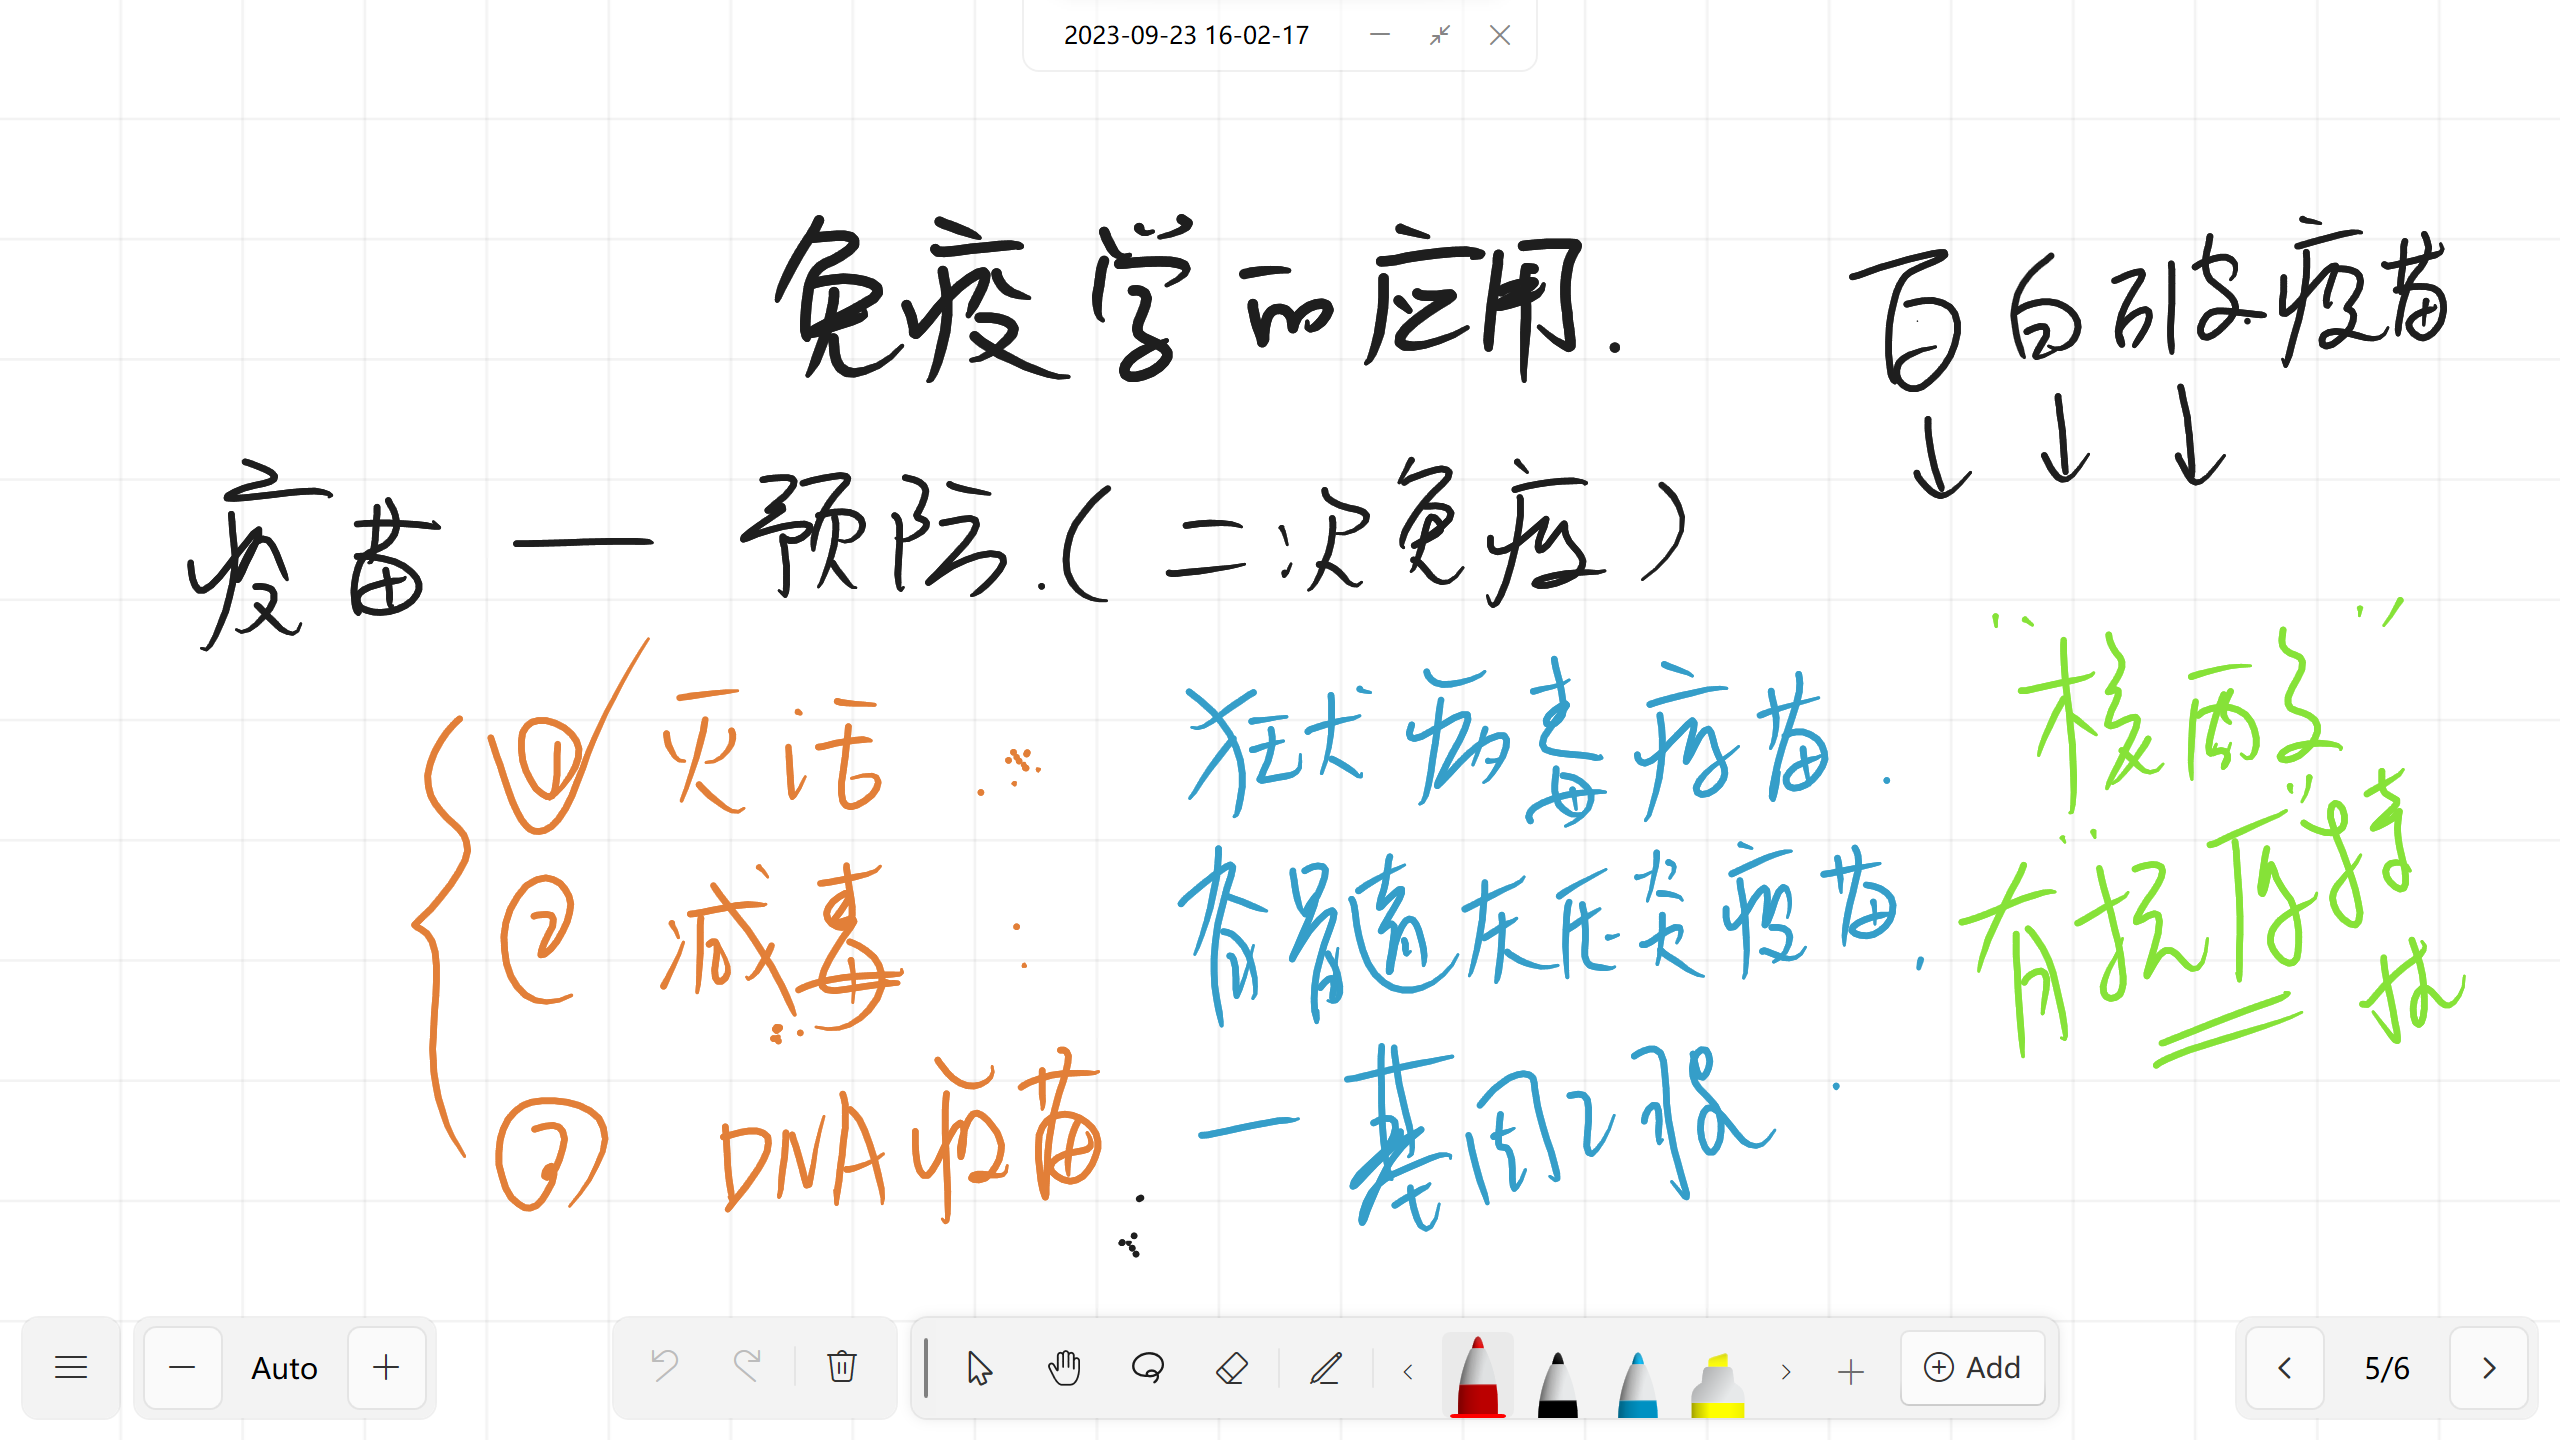 2023-09-23 16-02-17
免疫学的应用.
百白破疫苗
↓ ↓ ↓
疫苗 — 预防.(二次免疫)
① 灭活 : 狂犬病毒疫苗.
② 减毒 : 脊髓灰质炎疫苗.
③ DNA疫苗. — 基因工程
"核酸"
有抗原特
Auto
Add
5/6